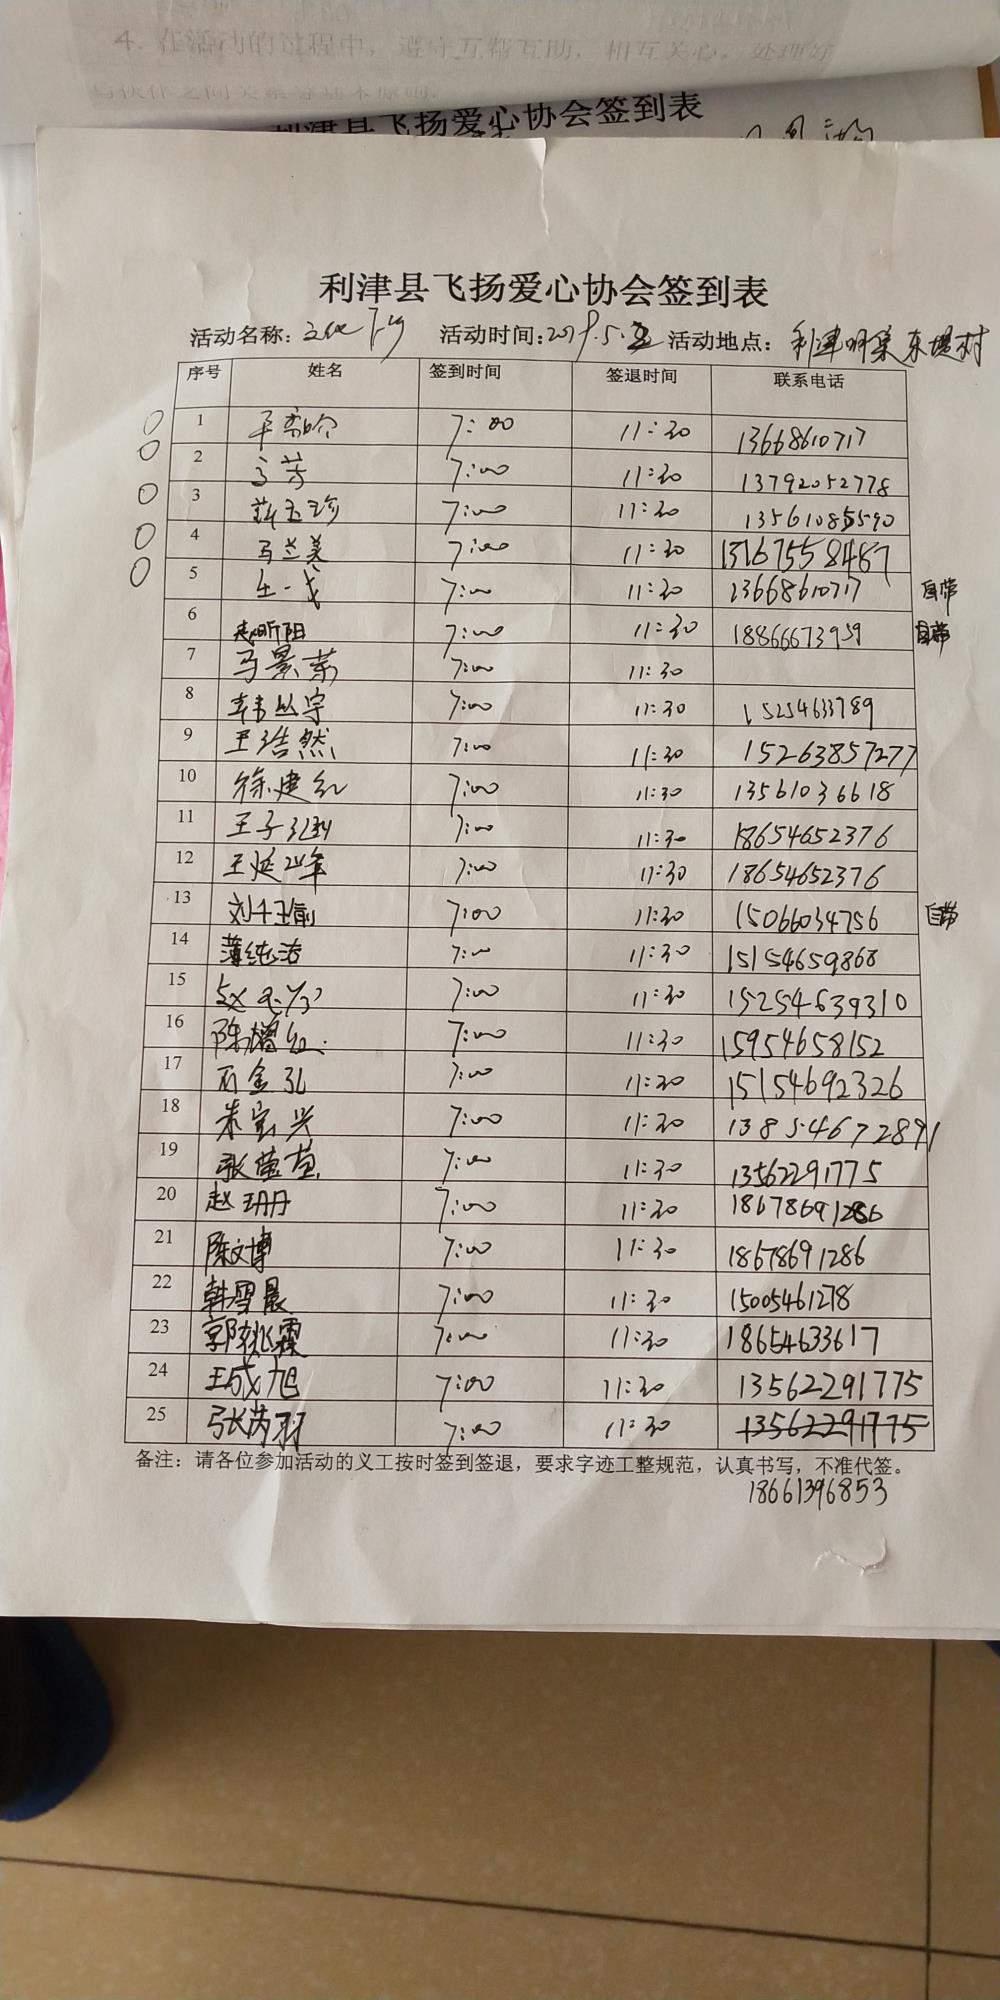 4. 在活动的过程中，遵守互帮互助，相互关心，处理好
利津县飞扬爱心协会签到表
利津县飞扬爱心协会签到表
活动名称：文化下乡 活动时间：2019.5. 活动地点：利津明集东堤村
序号 姓名 签到时间 签退时间 联系电话
1 7:00 11:30 13668610717
2 高芳 7:00 11:30 13792052778
3 薪玉珍 7:00 11:30 13561085590
4 马兰美 7:00 11:30 13167558467
5 7:00 11:30 13668610717 自带
6 赵昕阳 7:00 11:30 18866673959 自带
7 马景荣 7:00 11:30
8 韩丛宇 7:00 11:30 15254633789
9 王浩然 7:00 11:30 15263857277
10 徐建红 7:00 11:30 13561036618
11 王子 7:00 11:30 18654652376
12 王延 7:00 11:30 18654652376
13 刘 7:00 11:30 15066034756 自带
14 薄纯洁 7:00 11:30 15154659868
15 7:00 11:30 15254639310
16 陈增红 7:00 11:30 15954658152
17 石金孔 7:00 11:30 15154692326
18 朱宝兴 7:00 11:30 13854672891
19 张萤萤 7:00 11:30 13562291775
20 赵玥丹 7:00 11:30 18678691286
21 陈文博 7:00 11:30 18678691286
22 韩雪晨 7:00 11:30 15005461278
23 郭姚霖 7:00 11:30 18654633617
24 王成旭 7:00 11:30 13562291775
25 张芮羽 7:00 11:30 13562291775
备注：请各位参加活动的义工按时签到签退，要求字迹工整规范，认真书写，不准代签。
18661396853